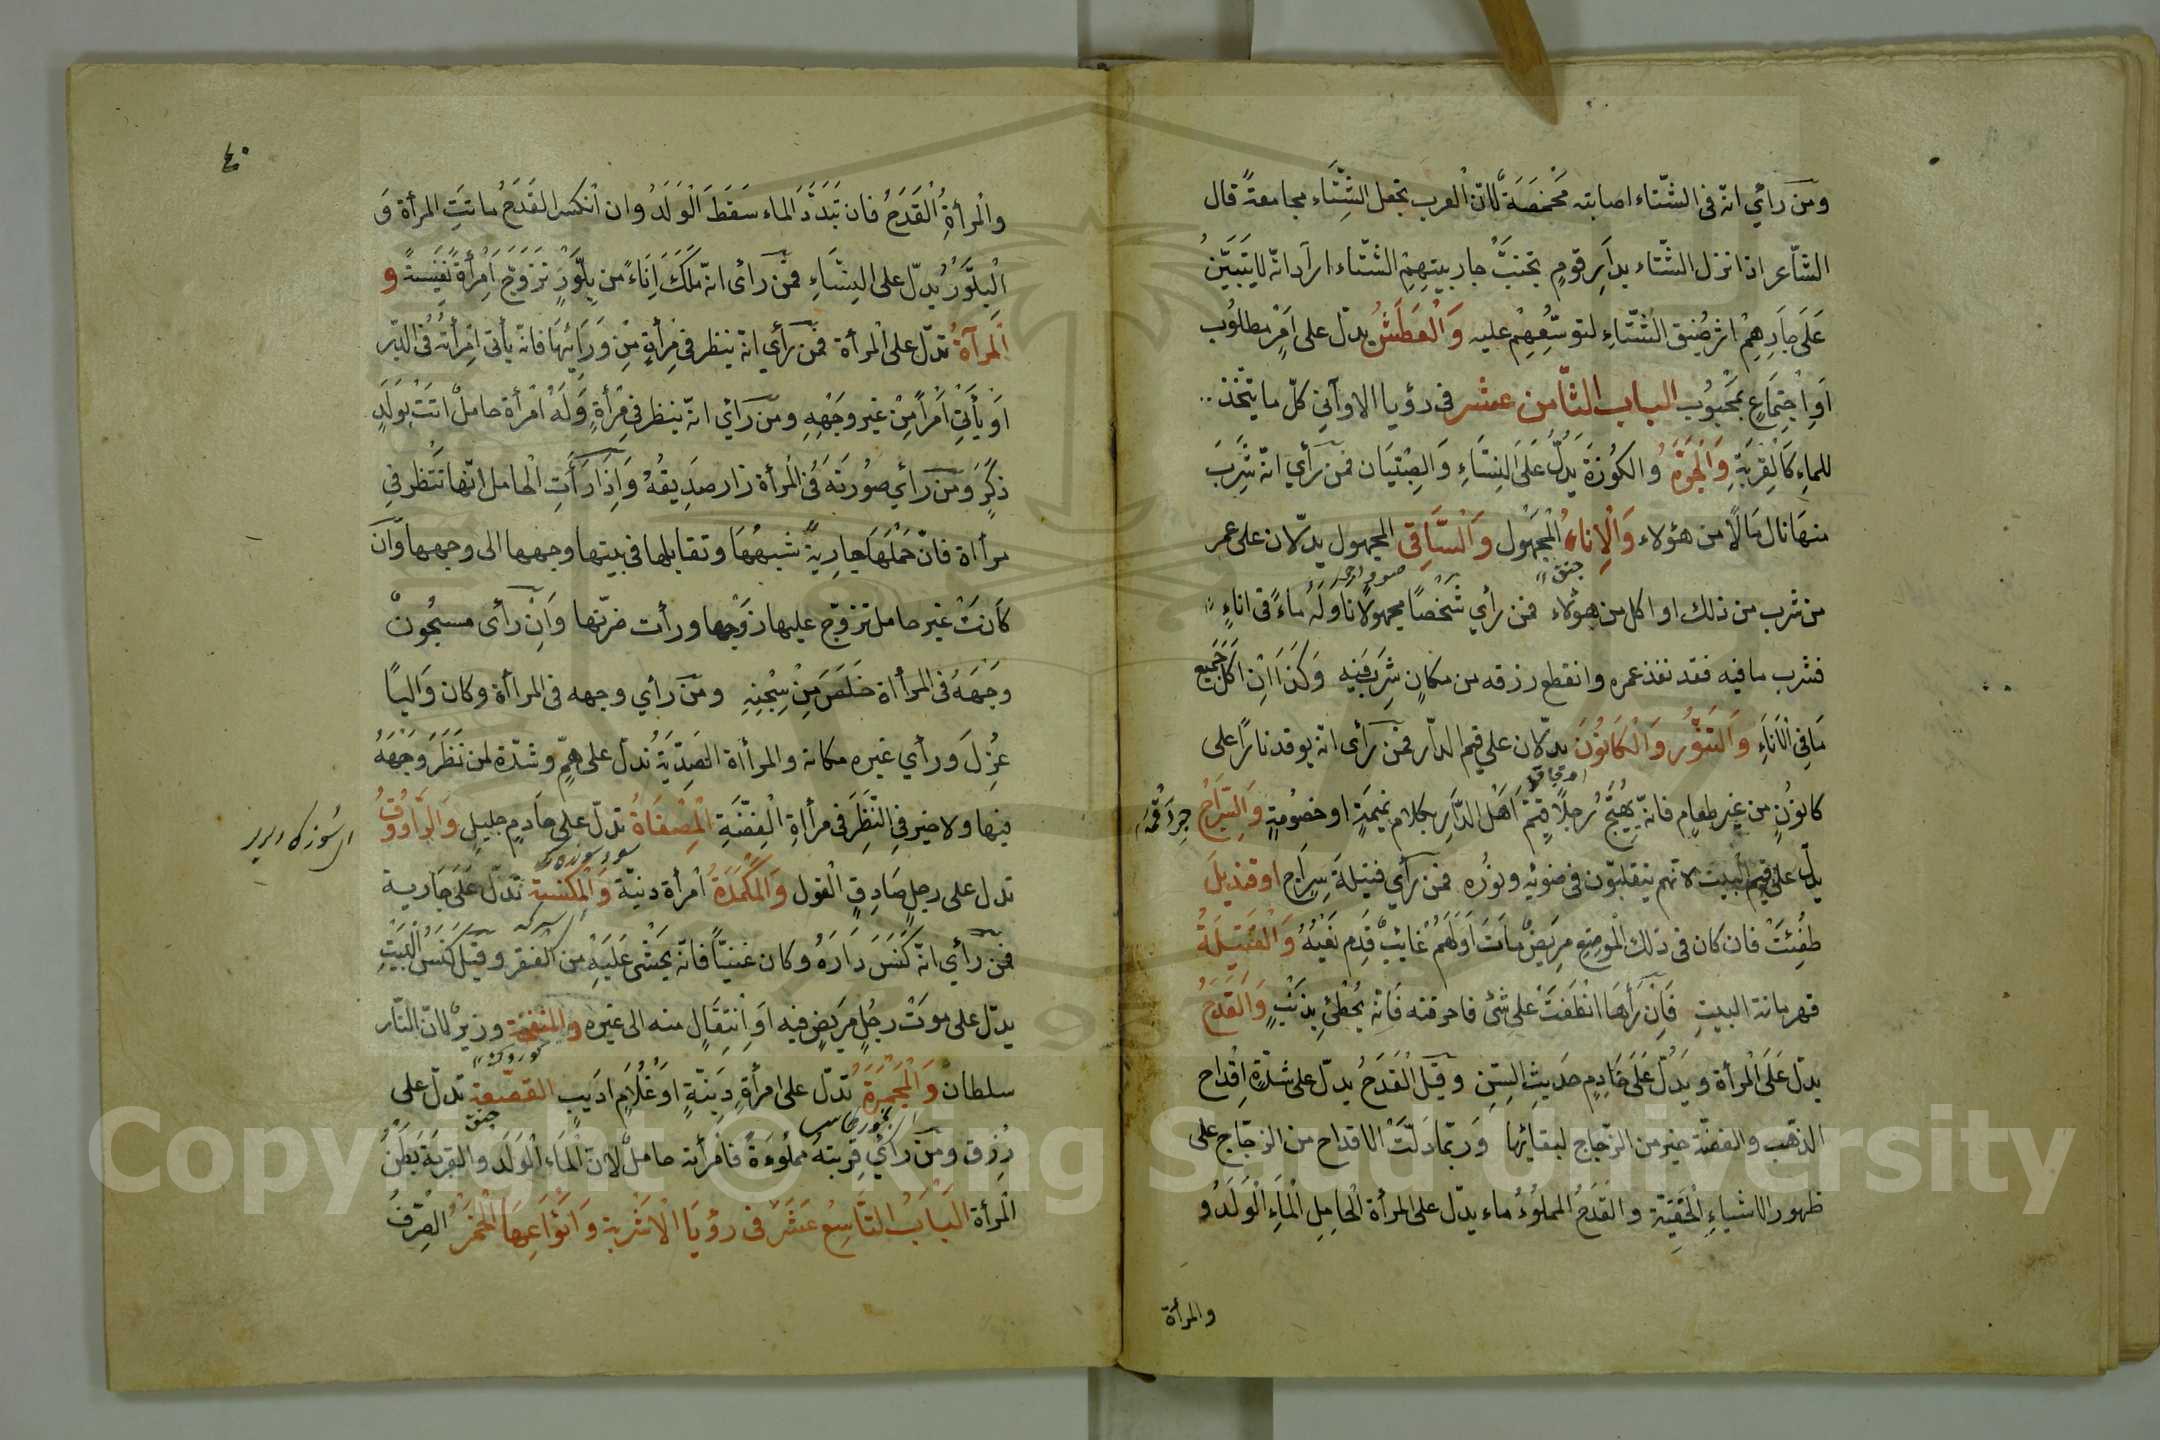 ومن رأي انه في الشتاء اصابته مخمصة لانّ العرب تجعل الشتاء مجامعة قال
الشاعر اذا نزل الشتاء بدار قوم تجنب جار بيتهم الشتاء اراد انه لا يتبين
على جارهم اثر ضيق الشتاء لتوسعهم عليه والعطش يدل على امر مطلوب
او اجتماع بمحبوب الباب الثامن عشر في رؤيا الاواني كل ما يتخذ
للماء كالقربة والجرة والكوزة يدل على النساء والصبيان فمن رأي انه شرب
منها نال مالا من هؤلاء والاناء المجهول والساقي المجهول يدلان على عمر
من شرب من ذلك او اكل من هؤلاء فمن رأي شخصا مجهولا ناوله ماء في اناء
فشرب ما فيه فقد نفذ عمره وانقطع رزقه من مكان شرب فيه وكذا ان اكل جميع
ما في الاناء والتنور والكانون يدلان على قيم الدار فمن رأى انه يوقد نارا على
كانون من غير طعام فانه يهيج رجلا قيم اهل الدار بكلام نميمة او خصومة والسراج
يدل على قيم البيت لانهم ينقلبون في ضوئه ونوره فمن رأي فتيلة سراج او قنديل
طفئت فان كان في ذلك الموضع مريض مات او لهم غايب قدم نعيه والفتيلة
قهرمانة البيت فان رأها انطفت على شئ فاحرقته فانه يخطئ بذنب والقدح
يدل على المرأة ويدل على خادم حديث السن وقيل القدح يدل على شدة اقداح
الذهب والفضة خير من الزجاج لبقائها وربما دلت الاقداح من الزجاج على
ظهور الاشياء الخفية والقدح المملوء ماء يدل على المرأة الحامل الماء الولد و
والمرأة
٤٠
والمرأة القدح فان تبدد الماء سقط الولد وان انكسر القدح ماتت المرأة و
البلور يدل على النساء فمن رأى انه ملك اناء من بلور تزوج امرأة نفيسة و
المرآة تدل على المرأة فمن رأي انه ينظر في مرأة من ورائها فانه يأتي امرأته في الدبر
او يأتي امرا من غير وجهه ومن رأي انه ينظر في مرأة وله امرأة حامل اتت بولد
ذكر ومن رأي صورته في المرأة زار صديقه واذا رأت الحامل انها تنظر في
مرأاة فان حملها جارية شبهها وتقابلها في بيتها وجهها الى وجهها وان
كانت غير حامل تزوج عليها زوجها ورأت ضرتها وان رأى مسجون
وجهه في المرأاة خلص من سجنه ومن رأي وجهه في المرأاة وكان واليا
عزل ورأي غيره مكانه والمرأاة الصدية تدل على هم وشدة لمن نظر وجهه
فيها ولا خير في النظر في مرأاة الفضة المصفاة تدل على خادم جليل والراووق
تدل على رجل صادق القول والمكمدة امرأة دنية والمكنسة تدل على جارية
فمن رأي انه كنس داره وكان غنيا فانه يخشى عليه من الفقر وقيل كنس البيت
يدل على موت رجل مريض فيه او انتقال منه الى غيره والمنفخة وزير لان النار
سلطان والمجمرة تدل على امرأة دينة او غلام اديب القصعة تدل على
رزق ومن رأي قربته مملوءة فامرأته حامل لان الماء الولد والقربة بطن
المرأة الباب التاسع عشر في رؤيا الاشربة وانواعها الخمر الصرف
Copyright © King Saud University